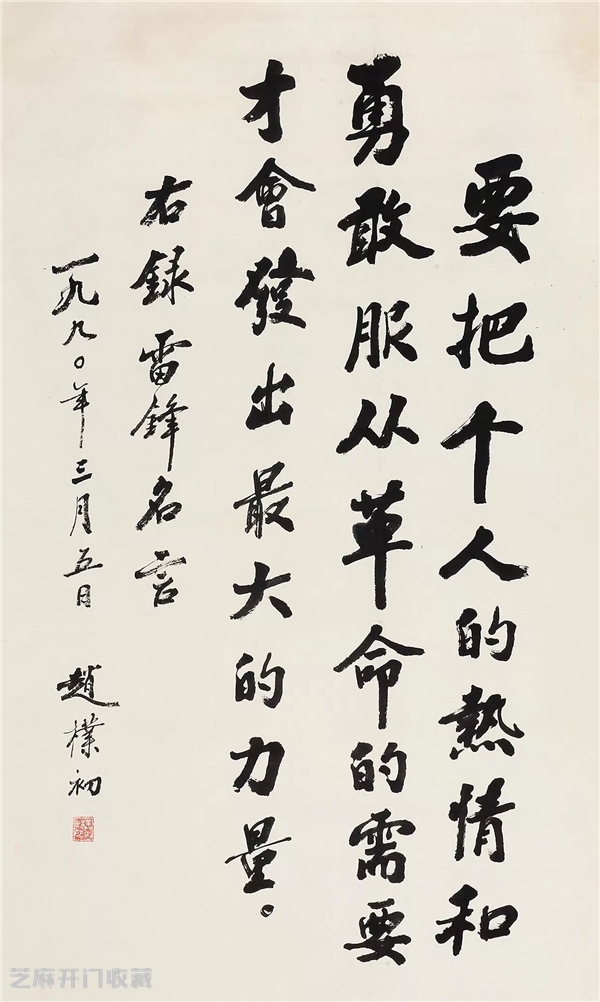 要把个人的熱情和
勇敢服从革命的需要
才會發出最大的力量。
右録雷鋒名言
一九九〇年三月五日 趙樸初
芝麻开门收藏